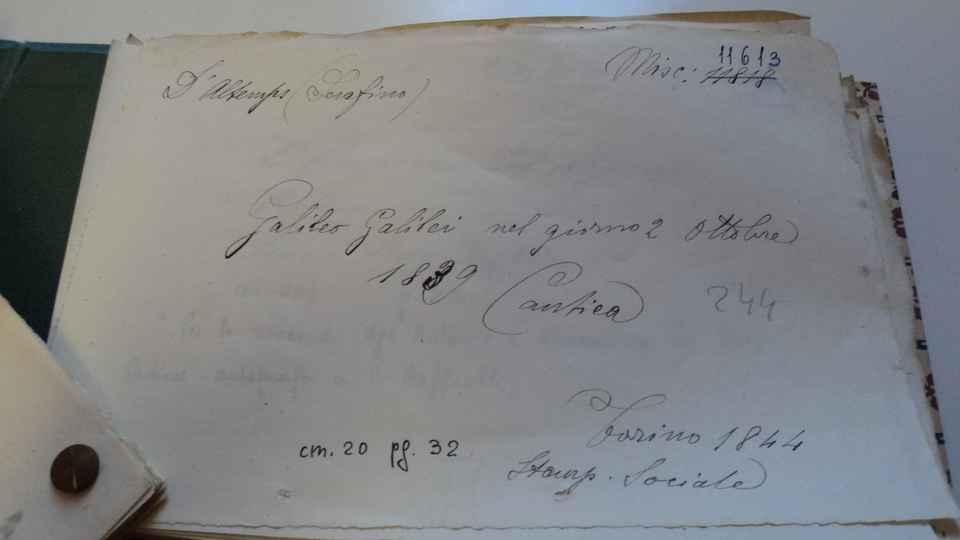 11613
Misc: 11818
D'Altemps (Serafino)
Galileo Galilei nel giorno 2 Ottobre
1839 Cantica
244
Torino 1844
cm. 20 pg. 32
Stamp. Sociale